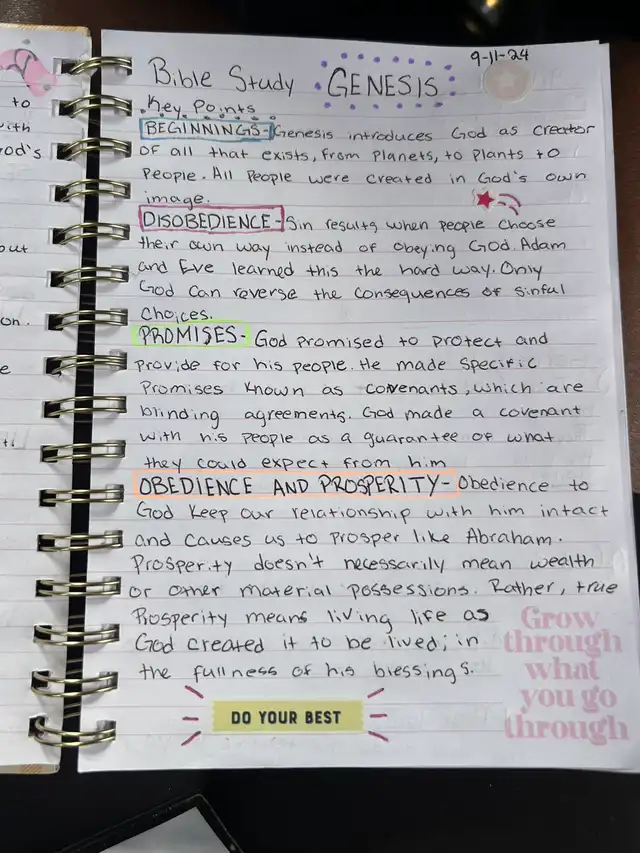 to
with
God's
out
on.
e
ti
9-11-24
Bible Study GENESIS
Key Points
BEGINNINGS- Genesis introduces God as creator
of all that exists, from planets, to plants to
people. All people were created in God's own
image.
DISOBEDIENCE- Sin results when people choose
their own way instead of obeying God. Adam
and Eve learned this the hard way. Only
God can reverse the consequences of sinful
choices.
PROMISES- God promised to protect and
provide for his people. He made specific
promises known as covenants, which are
blinding agreements. God made a covenant
with his people as a guarantee of what
they could expect from him
OBEDIENCE AND PROSPERITY- Obedience to
God keep our relationship with him intact
and causes us to prosper like Abraham.
Prosperity doesn't necessarily mean wealth
or other material possessions. Rather, true
Prosperity means living life as
God created it to be lived; in
the fullness of his blessings.
Grow
through
what
you go
through
DO YOUR BEST